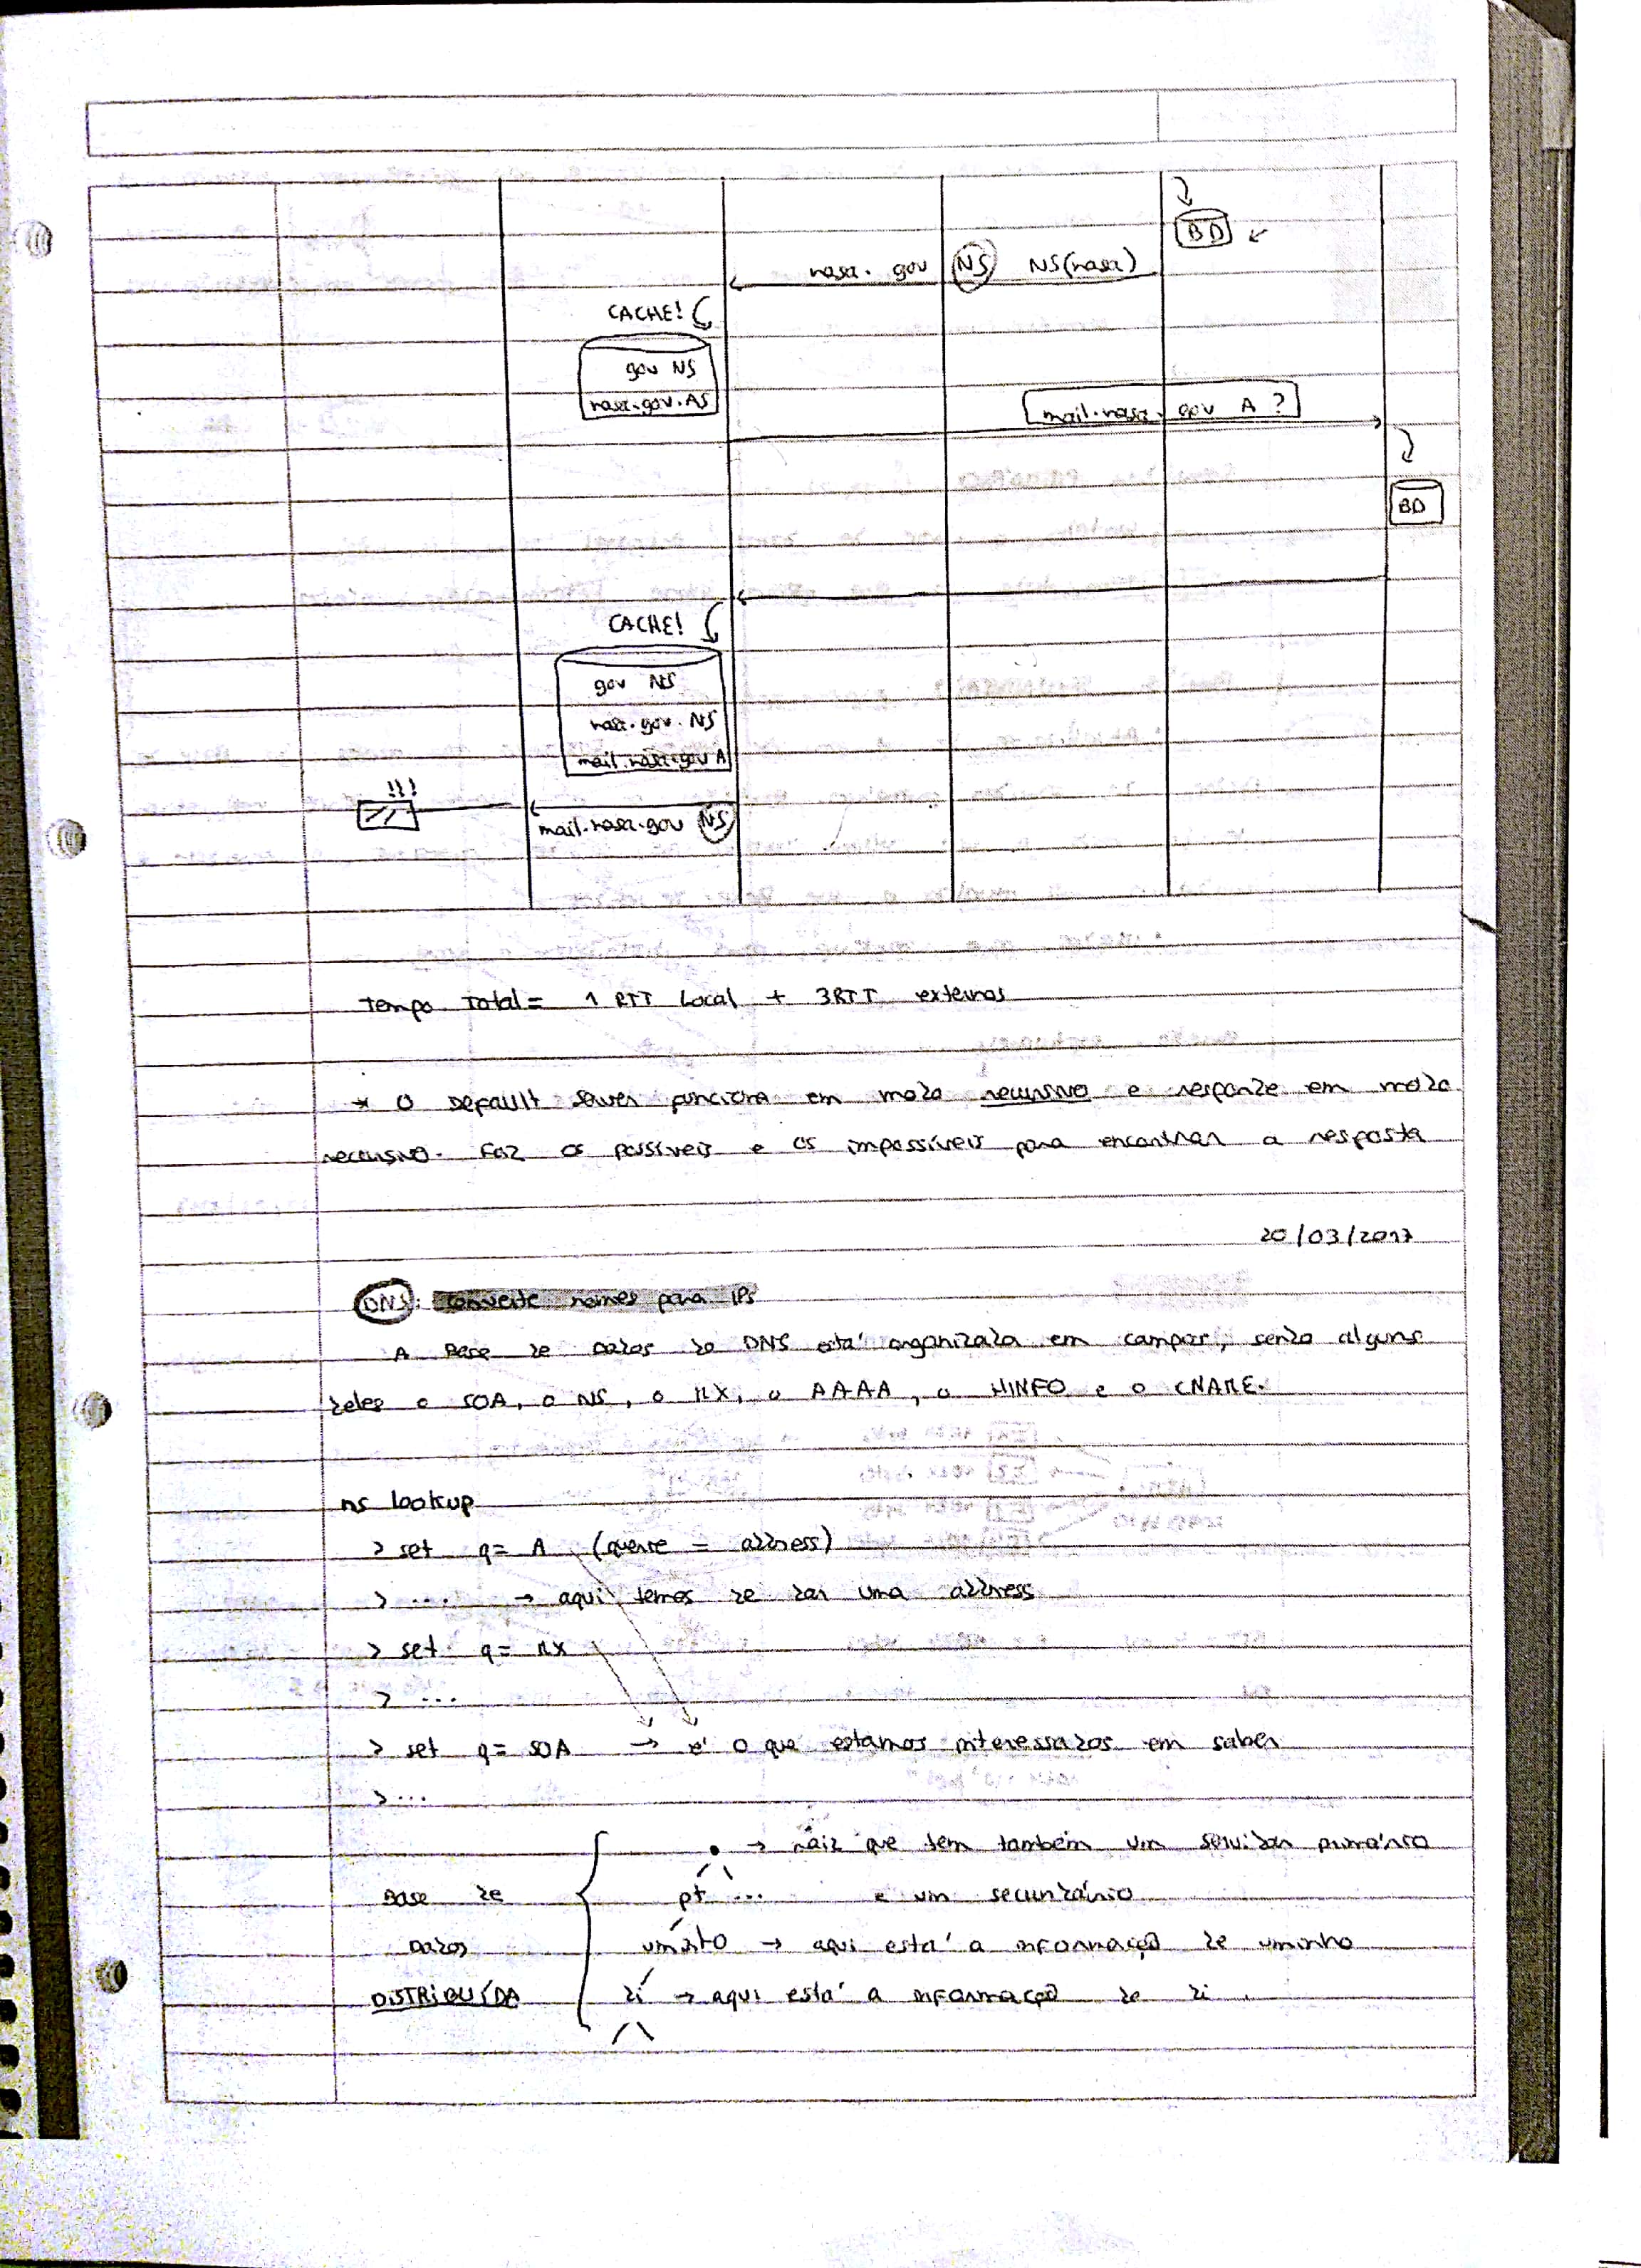 BD
nasa. gov NS NS(nasa)
CACHE!
gov NS
nasa.gov.AS
mail.nasa. gov A ?
BD
CACHE!
gov NS
nasa.gov.NS
mail.nasa.gov A
!!!
mail.nasa.gov NS
Tempo Total = 1 RTT Local + 3RTT externos
* O Default server funciona em modo recursivo e responde em modo
recursivo. Faz os possíveis e os impossíveis para encontrar a resposta
20/03/2017
DNS: converte nomes para IPs
A Base de Dados do DNS está organizada em campos, sendo alguns
deles o SOA, o NS, o MX, o AAAA, o HINFO e o CNAME.
ns lookup
> set q= A (querie = address)
> ... → aqui temos de dar uma address
> set q= MX
> ...
> set q= SOA → é o que estamos interessados em saber
> ...
. → raiz que tem também um servidor primário
Base de pt ... e um secundário
Dados uminho → aqui está a informação de uminho
DISTRIBUÍDA di → aqui está a informação de di